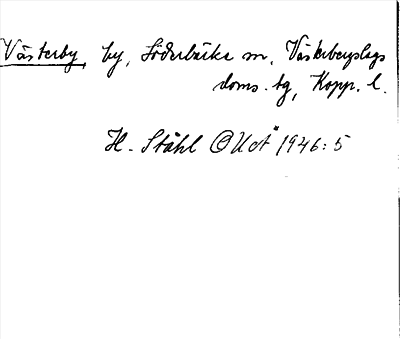 Västerby, by, Söderbärke sn, Västerbergslags
doms. tg, Kopp. l.
H. Ståhl OUÅ 1946: 5